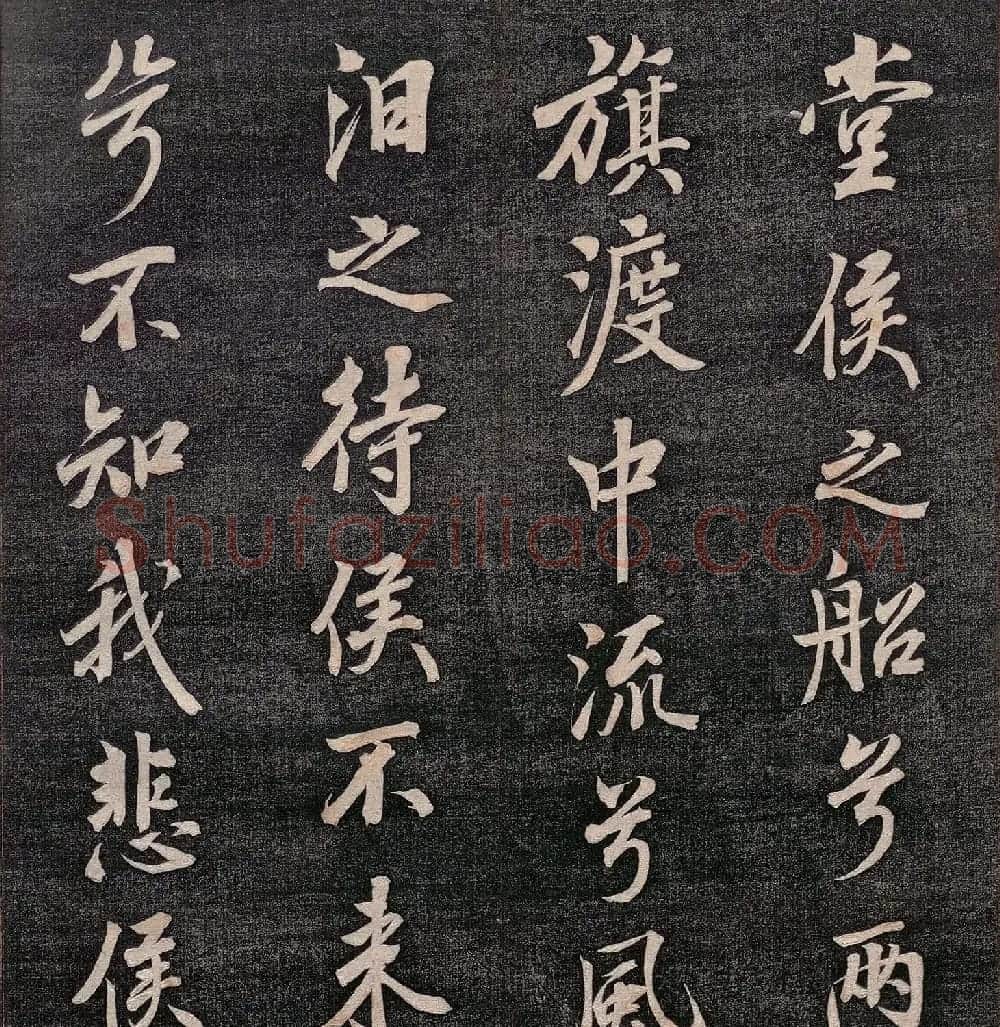 堂侯之船兮兩
旗渡中流兮風
汩之待侯不来
兮不知我悲侯
Shufaziliao.COM